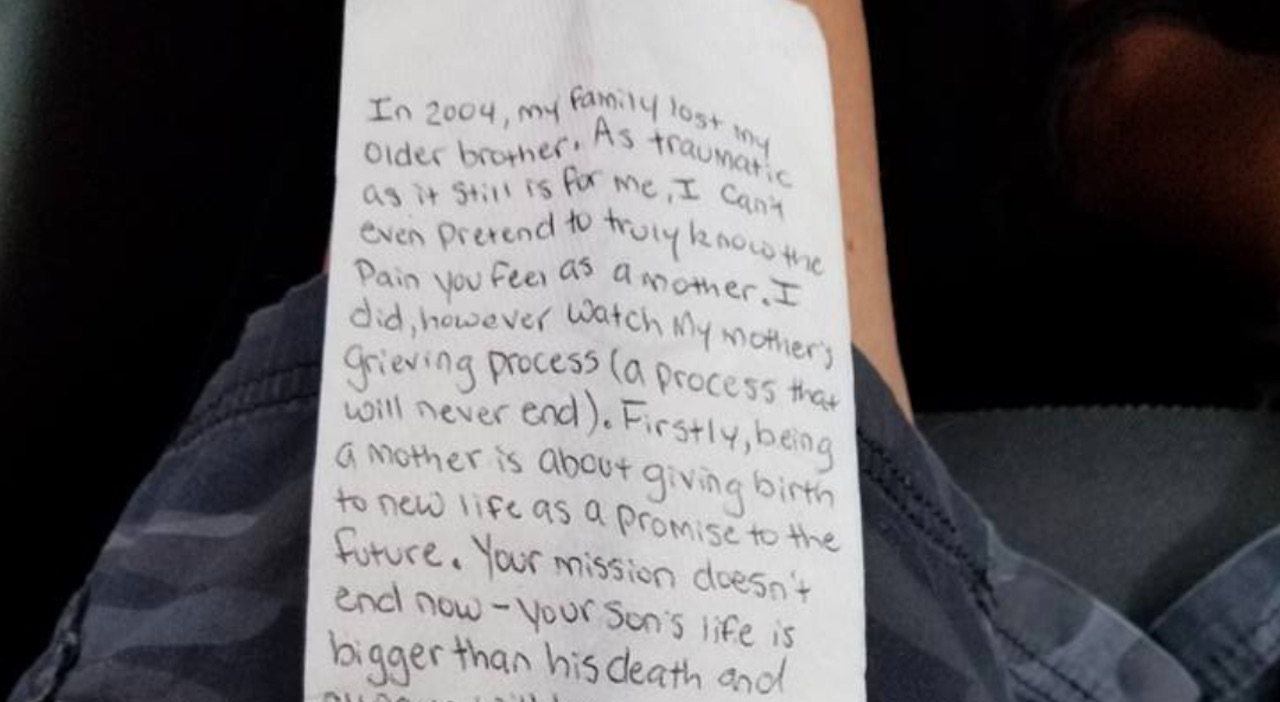 In 2004, my family lost my
older brother. As traumatic
as it still is for me, I can't
even pretend to truly know the
Pain you feel as a mother. I
did, however watch my mother's
grieving process (a process that
will never end). Firstly, being
a mother is about giving birth
to new life as a promise to the
future. Your mission doesn't
end now - your son's life is
bigger than his death and